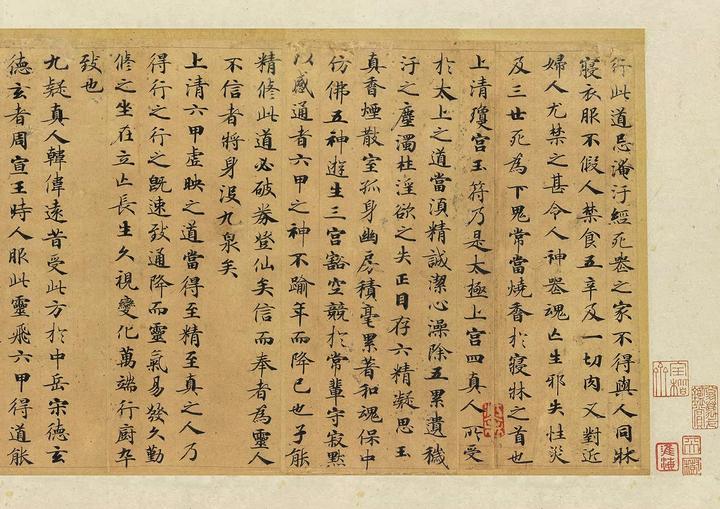 行此道忌淹汙經死喪之家不得與人同牀
寢衣服不假人禁食五辛及一切肉又對近
婦人尤禁之甚令人神喪魂亡生邪失性災
及三世死為下鬼常當燒香於寢牀之首也
上清瓊宮玉符乃是太極上宮四真人所受
於太上之道當須精誠潔心澡除五累遺穢
汙之塵濁杜淫欲之失正目存六精凝思玉
真香煙散室孤身幽房積毫累著和魂保中
仿佛五神遊生三宮豁空競於常輩守寂默
以感通者六甲之神不踰年而降已也子能
精修此道必破券登仙矣信而奉者為靈人
不信者將身沒九泉矣
上清六甲虛映之道當得至精至真之人乃
得行之行之既速致通降而靈氣易發久勤
修之坐在立亡長生久視變化萬端行廚卒
致也
九疑真人韓偉遠昔受此方於中岳宋德玄
德玄者周宣王時人服此靈飛六甲得道能